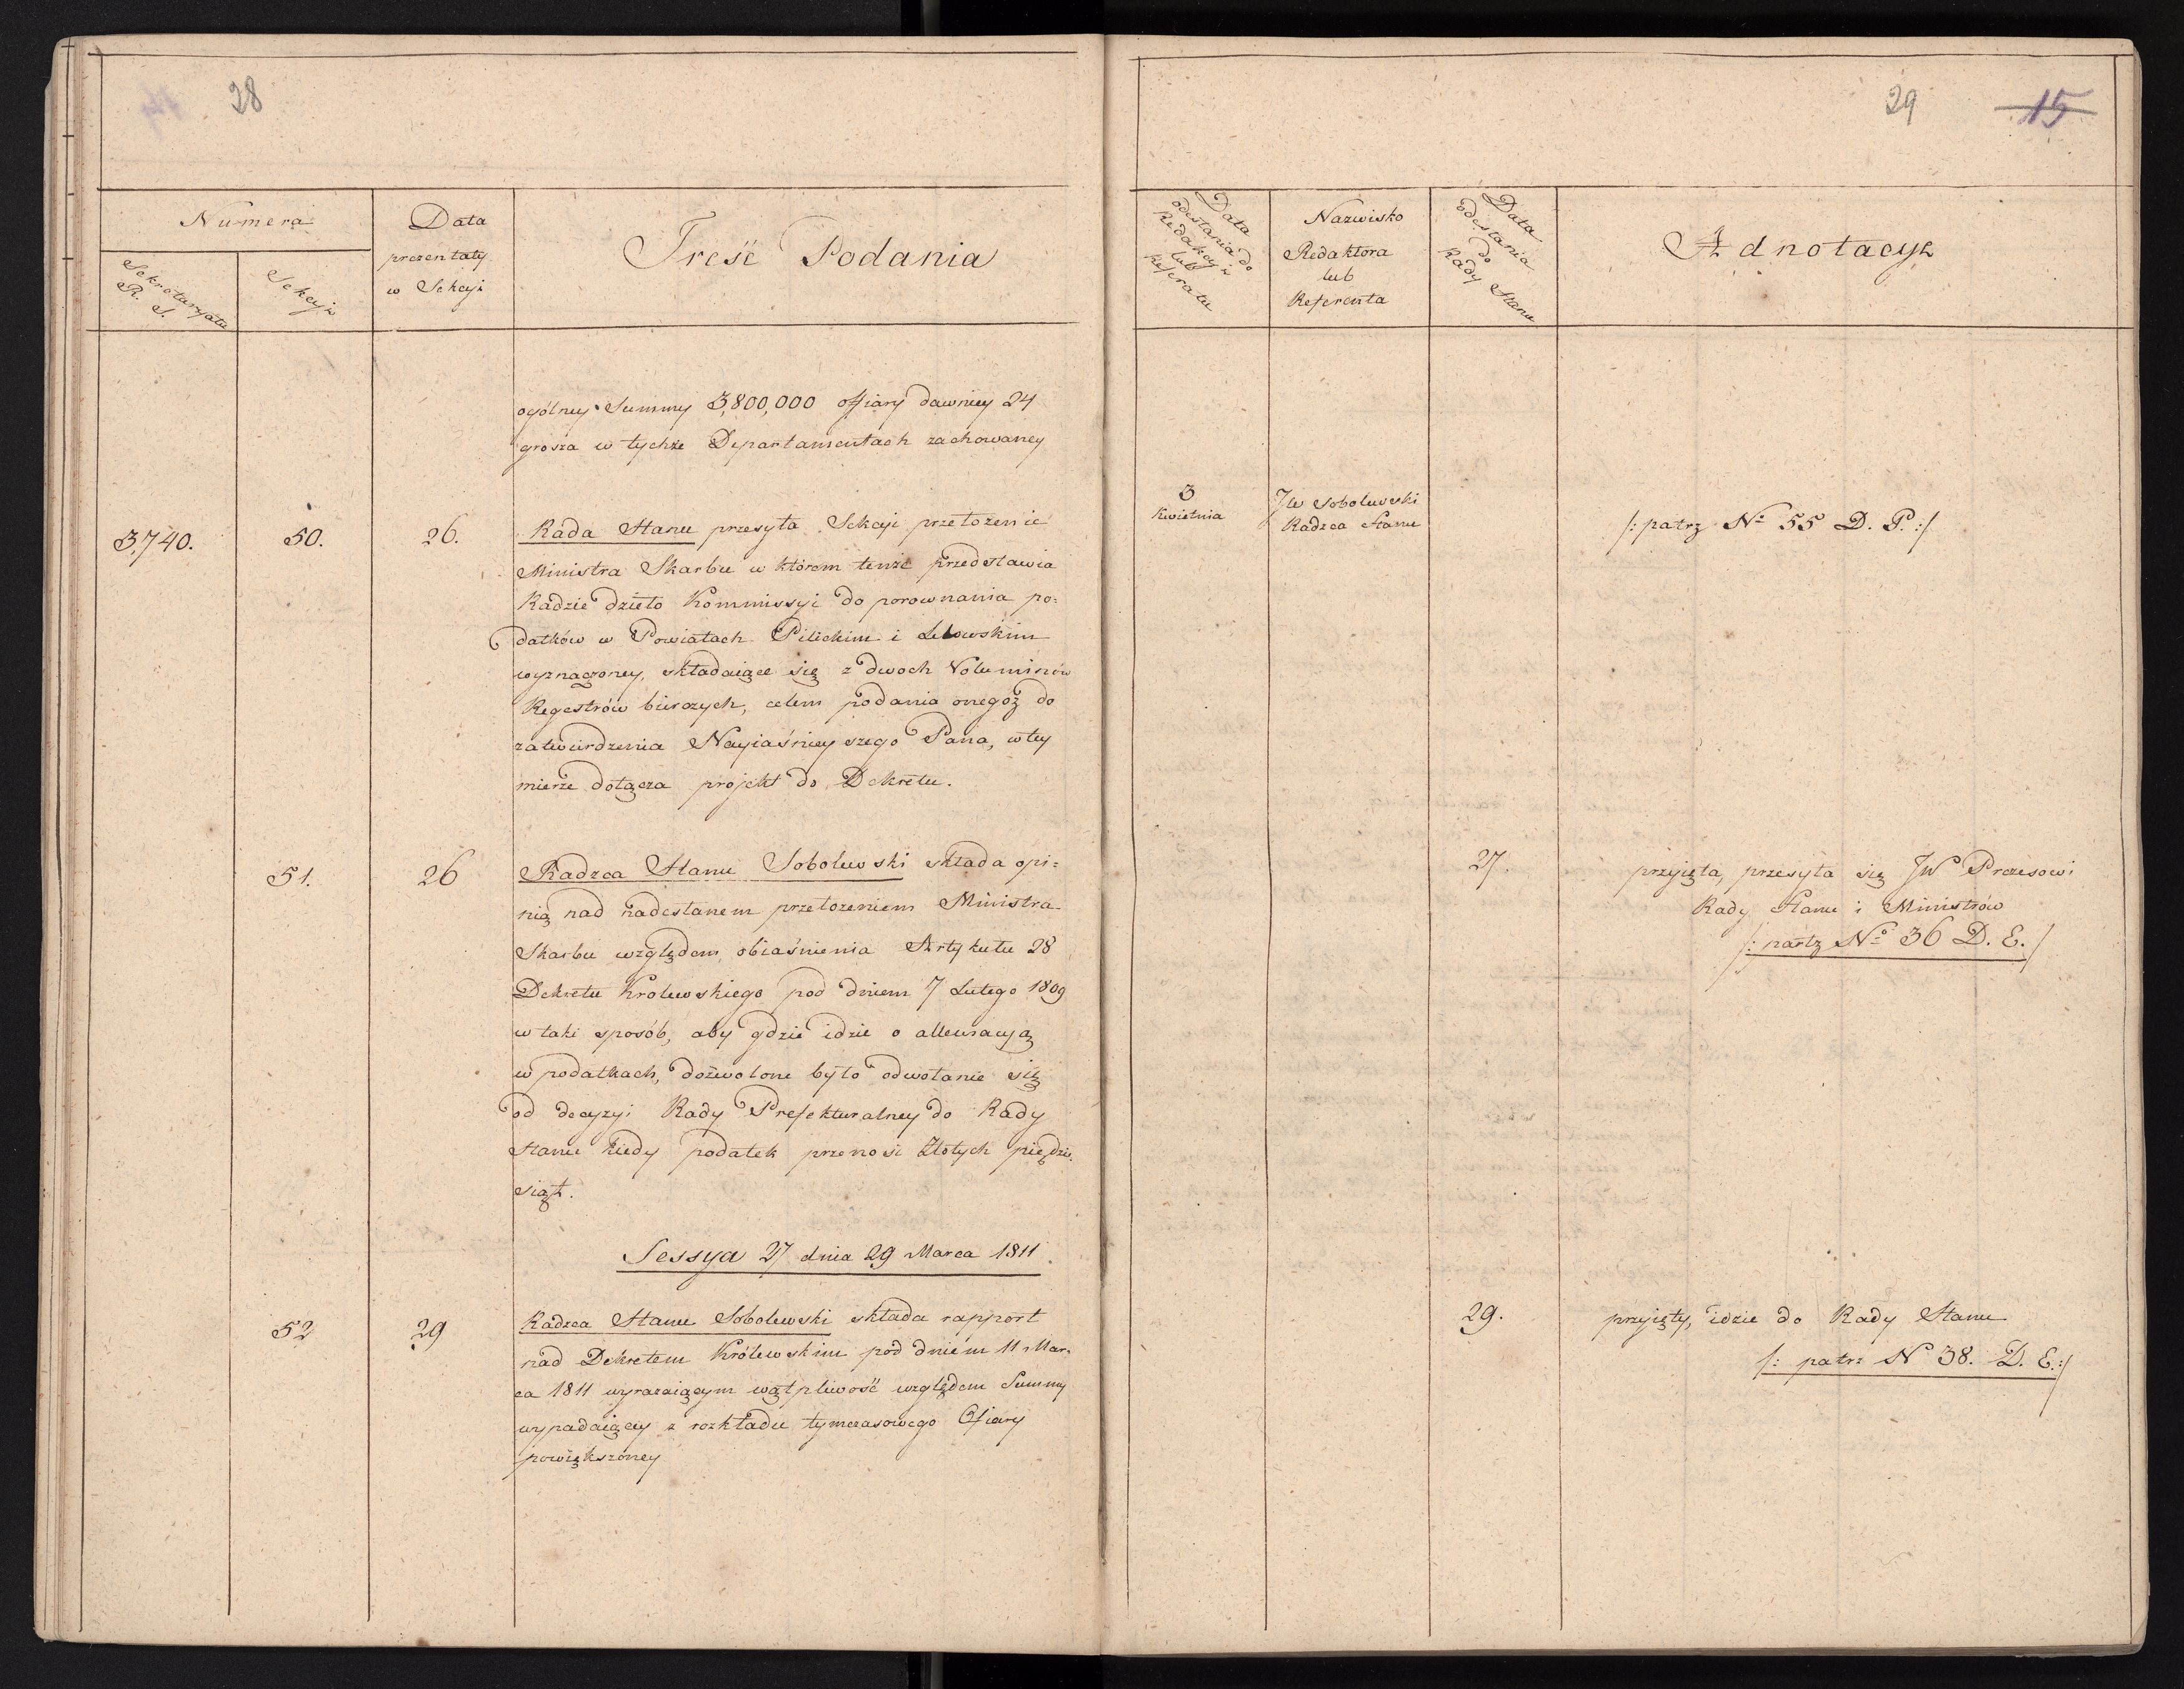 28
Numera
Sekretaryatu
R. S.
Sekcyi
Data
prezentaty
w Sekcyi
Treść Podania
ogólney Summy 3,800,000 offiary dawniey 24
grosza w tychże Departamentach zachowaney
3,740.
50.
26.
Rada Stanu przesyła Sekcyi przełożenie
Ministra Skarbu w którem tenże przedstawia
Radzie dzieło Kommissyi do porownania po=
datków w Powiatach Pilickim i Lelowskim
wyznaczoney, składaiące się z dwoch Voluminów
Regestrów bierczych, celem podania onegoż do
zatwierdzenia Nayiaśnieyszego Pana, w tey
mierze dołącza projekt do Dekretu.
51.
26
Radzca Stanu Sobolewski składa opi=
nią nad nadesłanem przełożeniem Ministra
Skarbu względem obiaśnienia Artykułu 28
Dekretu Krolewskiego pod dniem 7 Lutego 1809
w taki sposób, aby gdzie idzie o allewiacyą
w podatkach, dozwolone było odwołanie się
od decyzyi Rady Prefekturalney do Rady
Stanu kiedy podatek przenosi Złotych piędzie=
siąt.
Sessya 27 dnia 29 Marca 1811
52
29
Radzca Stanu Sobolewski składa rapport
nad Dekretem Królewskim pod dniem 11 Mar=
ca 1811 wyrażaiącym wątpliwość względem Summy
wypadaiącey z rozkładu tymczasowego Ofiary
powiększoney
29
15
Data
odesłania do
Redakcyi
lub
Referatu
Nazwisko
Redaktora
lub
Referenta
Data
odesłania
do
Rady Stanu
Adnotacye
3
Kwietnia
JW Sobolewski
Radzca Stanu
/: patrz No 55 D. P. :/
27.
przyięta, przesyła się JW Prezesowi
Rady Stanu i Ministrów
/: partz No 36 D. E. /
29.
przyięty, idzie do Rady Stanu
/: patrz N 38. D. E. :/